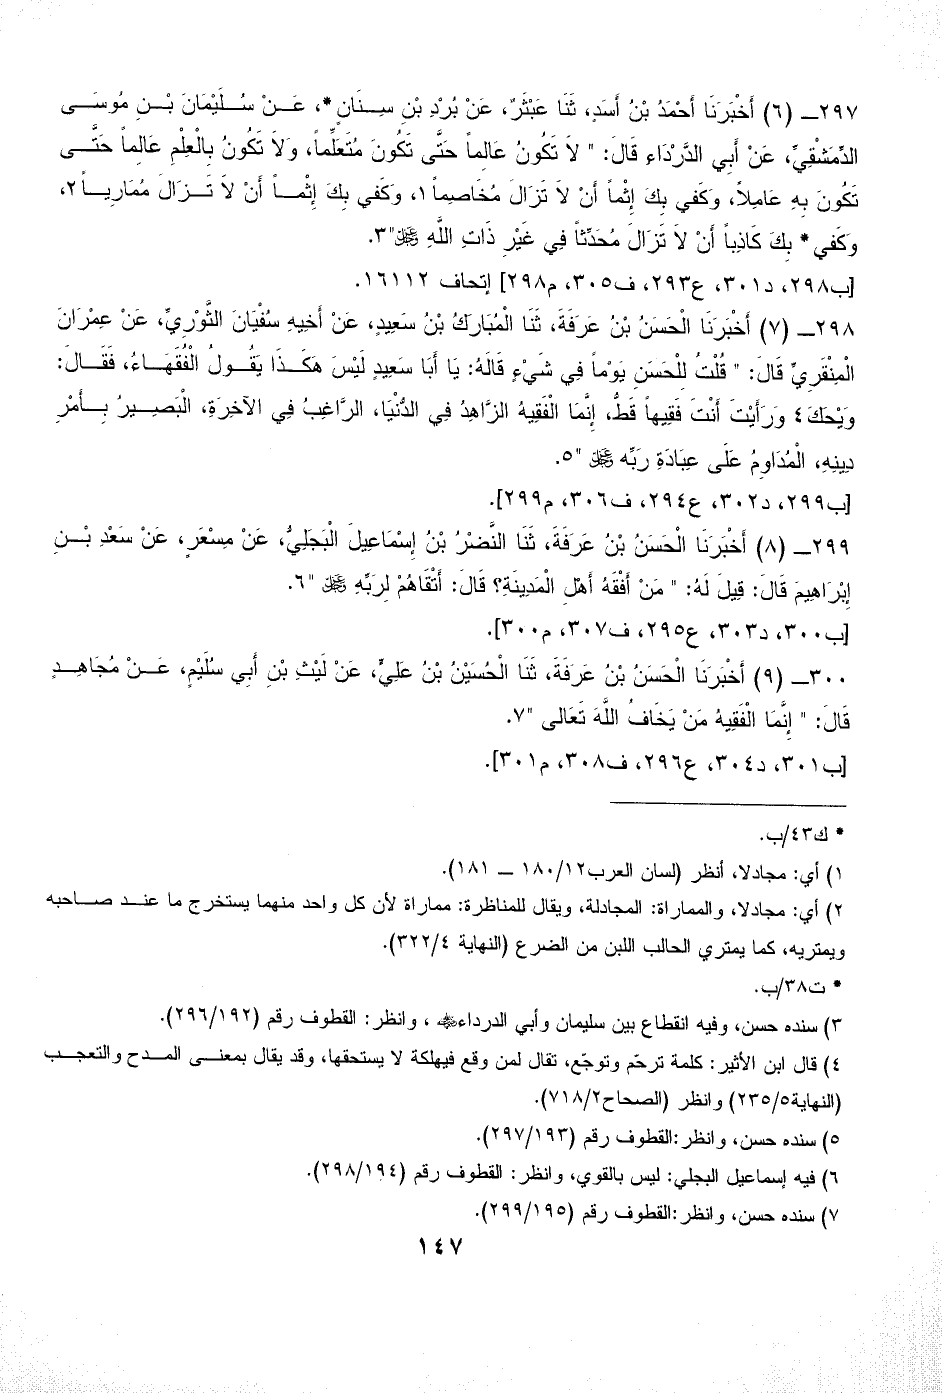 ٢٩٧ـ (٦) أَخْبَرَنَا أَحْمَدُ بْنُ أَسَدٍ، ثَنَا عَبْثَرٌ، عَنْ بُرْدِ بْنِ سِنَانٍ*، عَنْ سُلَيْمَانَ بْنِ مُوسَى
الدِّمَشْقِيِّ، عَنْ أَبِي الدَّرْدَاءِ قَالَ: " لاَ تَكُونُ عَالِماً حَتَّى تَكُونَ مُتَعَلِّماً، وَلاَ تَكُونُ بِالْعِلْمِ عَالِماً حَتَّى
تَكُونَ بِهِ عَامِلاً، وَكَفَي بِكَ إِثْماً أَنْ لاَ تَزَالَ مُخَاصِماً١، وَكَفَي بِكَ إِثْماً أَنْ لاَ تَزَالَ مُمَارِياً٢،
وَكَفَي* بِكَ كَاذِباً أَنْ لاَ تَزَالَ مُحَدِّثاً فِي غَيْرِ ذَاتِ اللَّهِ ﷻ"٣.
[ب٢٩٨، د٣٠١، ع٢٩٣، ف٣٠٥، م٢٩٨] إتحاف ١٦١١٢.
٢٩٨ـ (٧) أَخْبَرَنَا الْحَسَنُ بْنُ عَرَفَةَ، ثَنَا الْمُبَارَكُ بْنُ سَعِيدٍ، عَنْ أَخِيهِ سُفْيَانَ الثَّوْرِيِّ، عَنْ عِمْرَانَ
الْمِنْقَرِيِّ قَالَ: " قُلْتُ لِلْحَسَنِ يَوْماً فِي شَيْءٍ قَالَهُ: يَا أَبَا سَعِيدٍ لَيْسَ هَكَذَا يَقُولُ الْفُقَهَاءُ، فَقَالَ:
وَيْحَكَ٤ وَرَأَيْتَ أَنْتَ فَقِيهاً قَطُّ، إِنَّمَا الْفَقِيهُ الزَّاهِدُ فِي الدُّنْيَا، الرَّاغِبُ فِي الآخِرَةِ، الْبَصِيرُ بِأَمْرِ
دِينِهِ، الْمُدَاوِمُ عَلَى عِبَادَةِ رَبِّهِ ﷻ "٥.
[ب٢٩٩، د٣٠٢، ع٢٩٤، ف٣٠٦، م٢٩٩].
٢٩٩ـ (٨) أَخْبَرَنَا الْحَسَنُ بْنُ عَرَفَةَ، ثَنَا النَّضْرُ بْنُ إِسْمَاعِيلَ الْبَجَلِيُّ، عَنْ مِسْعَرٍ، عَنْ سَعْدِ بْنِ
إِبْرَاهِيمَ قَالَ: قِيلَ لَهُ: " مَنْ أَفْقَهُ أَهْلِ الْمَدِينَةِ؟ قَالَ: أَتْقَاهُمْ لِرَبِّهِ ﷻ "٦.
[ب٣٠٠، د٣٠٣، ع٢٩٥، ف٣٠٧، م٣٠٠].
٣٠٠ـ (٩) أَخْبَرَنَا الْحَسَنُ بْنُ عَرَفَةَ، ثَنَا الْحُسَيْنُ بْنُ عَلِيٍّ، عَنْ لَيْثِ بْنِ أَبِي سُلَيْمٍ، عَنْ مُجَاهِدٍ
قَالَ: " إِنَّمَا الْفَقِيهُ مَنْ يَخَافُ اللَّهَ تَعَالى "٧.
[ب٣٠١، د٣٠٤، ع٢٩٦، ف٣٠٨، م٣٠١].
* ك٤٣/ب.
١) أي: مجادلا، أنظر (لسان العرب١٨٠/١٢ ــ ١٨١).
٢) أي: مجادلا، والمماراة: المجادلة، ويقال للمناظرة: مماراة لأن كل واحد منهما يستخرج ما عند صاحبه
ويمتريه، كما يمتري الحالب اللبن من الضرع (النهاية ٣٢٢/٤).
* ت٣٨/ب.
٣) سنده حسن، وفيه انقطاع بين سليمان وأبي الدرداء﵁ ، وانظر: القطوف رقم (٢٩٦/١٩٢).
٤) قال ابن الأثير: كلمة ترحّم وتوجّع، تقال لمن وقع فيهلكة لا يستحقها، وقد يقال بمعنى المدح والتعجب
(النهاية٢٣٥/٥) وانظر (الصحاح٧١٨/٢).
٥) سنده حسن، وانظر:القطوف رقم (٢٩٧/١٩٣).
٦) فيه إسماعيل البجلي: ليس بالقوي، وانظر: القطوف رقم (٢٩٨/١٩٤).
٧) سنده حسن، وانظر:القطوف رقم (٢٩٩/١٩٥).
١٤٧